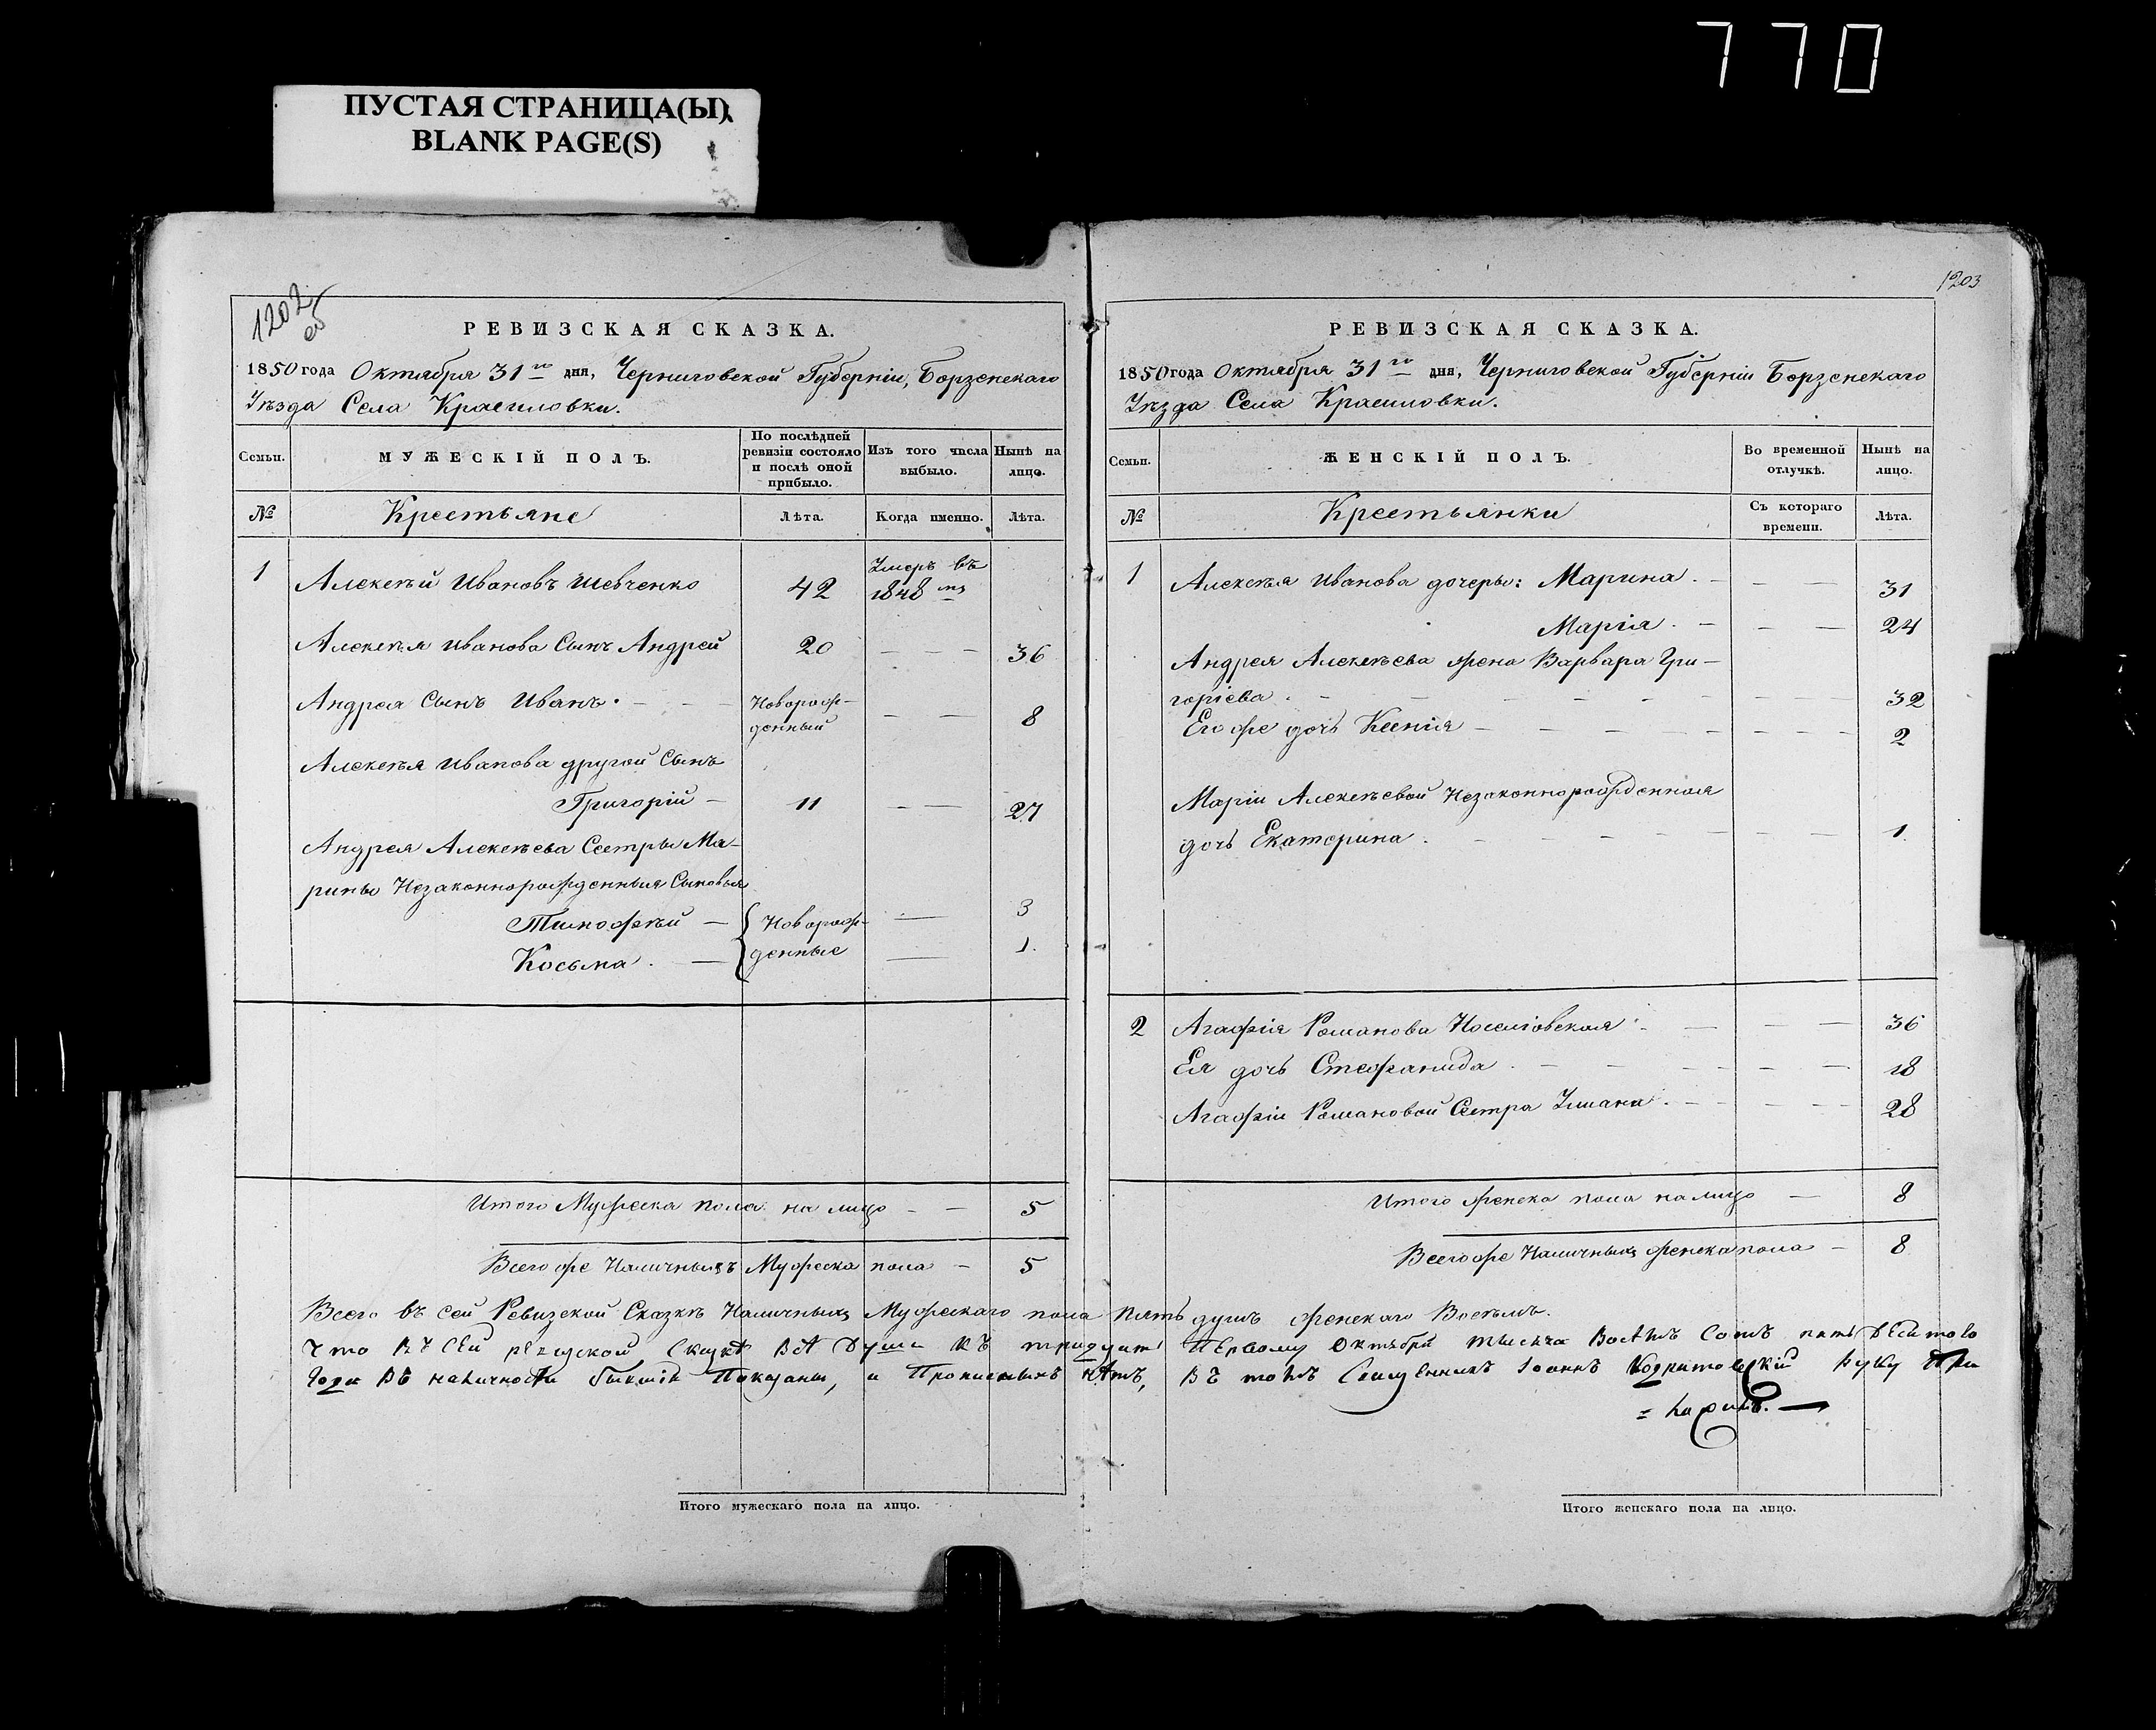 770
ПУСТАЯ СТРАНИЦА(Ы)
BLANK PAGE(S)
1202
об
РЕВИЗСКАЯ СКАЗКА.
1850 года Октября 31го дня, Черниговской Губерніи, Борзенскаго
Уѣзда Села Красиловки.
Семьи.
МУЖЕСКІЙ ПОЛЪ.
По послѣдней ревизіи состояло и послѣ оной прибыло.
Изъ того числа выбыло.
Нынѣ на лицо.
№
Крестьяне
Лѣта.
Когда именно.
Лѣта.
1 Алексѣй Ивановъ Шевченко 42 Умеръ въ 1848 мъ
Алексѣя Иванова Сынъ Андрей 20 — — — 36
Андрея Сынъ Иванъ. — — Новорож-
денный — — 8
Алексѣя Иванова другой Сынъ
Григорій — 11 — — 27
Андрея Алексѣева Сестры Ма-
рины Незаконнорожденныя Сыновья
Тимофѣй — { Новорож- — 3
Косьма. — денные — 1.
Итого Мужеска пола на лицо — — 5
Всего же Наличныхъ Мужеска пола — 5
Итого мужескаго пола на лицо.
1203
РЕВИЗСКАЯ СКАЗКА.
1850 года Октября 31го дня, Черниговской Губерніи Борзенскаго
Уѣзда Села Красиловки.
Семьи.
ЖЕНСКІЙ ПОЛЪ.
Во временной отлучкѣ.
Нынѣ на лицо.
№
Крестьянки
Съ котораго времени.
Лѣта.
1 Алексѣя Иванова дочеры: Марина. — — — 31
Марія. — — — 24
Андрея Алексѣева жена Варвара Гри-
горіева. — — — 32
Его же дочь Ксенія — — — 2
Маріи Алексѣевой Незаконнорожденная
дочь Екатерина. — — — 1.
2 Агафія Романова — — — 36
Ея дочь Стефанида. — — — 18
Агафіи Романовой Сестра — — — 28
Итого женска пола на лицо — 8
Всего же Наличныхъ женска пола — 8
Итого женскаго пола на лицо.
Всего въ сей Ревизской Сказкѣ Наличныхъ Мужескаго пола пять душъ женскаго Восѣмъ.
Что въ сей ревизской сказкѣ всѣ души къ тридцать первому Октября тысяча восѣмъ сотъ пятьдесятого
Года въ наличности бывшія показаны, и прописныхъ нѣтъ, въ томъ Священникъ Іоаннъ руку при
= ложилъ. —